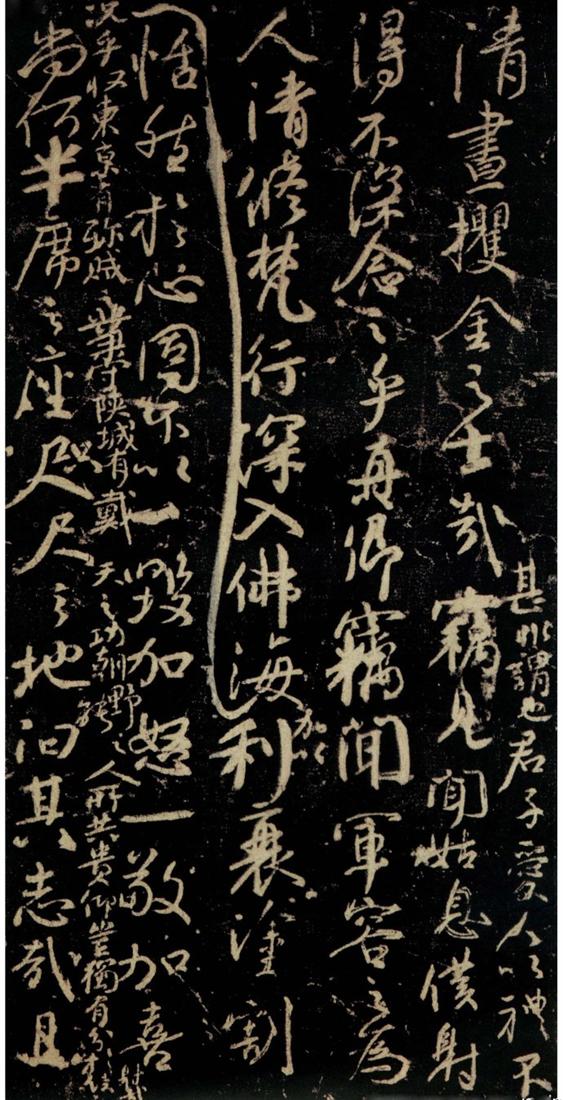 甚非謂也君子愛人以禮不
清晝攫金之士哉竊見聞姑息僕射
得不深念之乎再卿竊聞軍容之為
人清修梵行深入佛海加以利衰塗割
恬然於心固不以一毀加怒一敬加喜
況乎收東京有殄賊之業守陝城有戴天之功朝野之人所共貴仰豈獨有分於僕射哉
尚何半席之座咫尺之地汨其志哉且